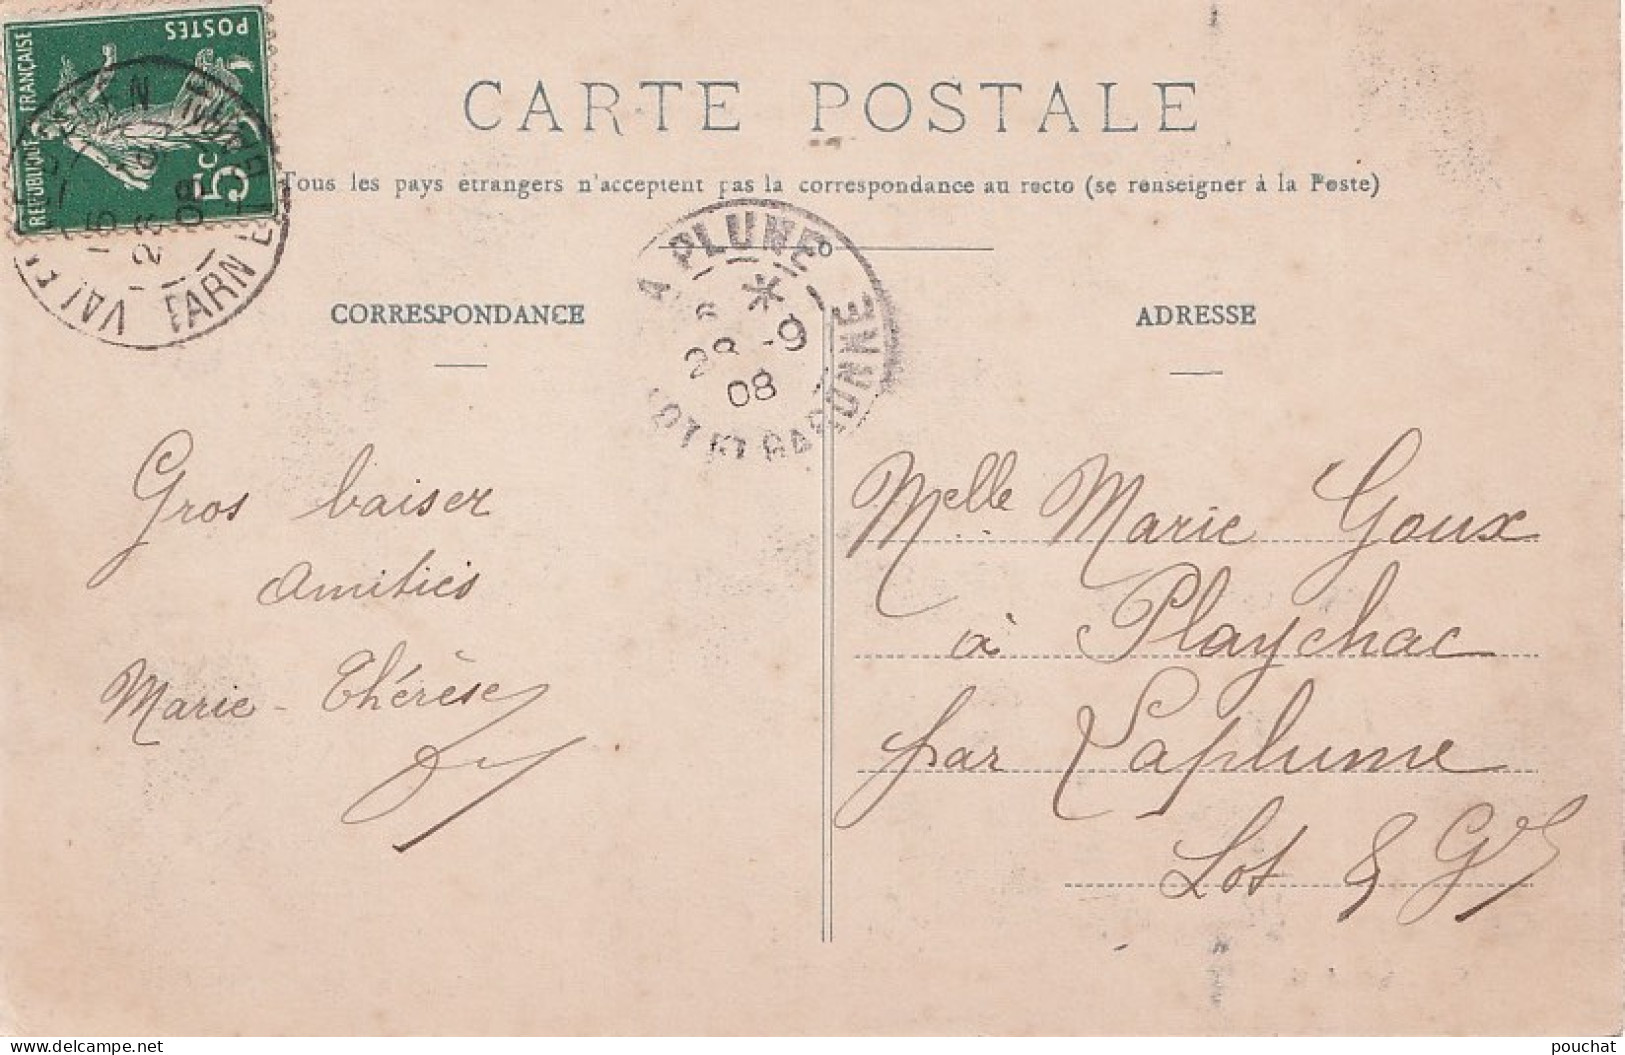 POSTES
REPUBLIQUE FRANÇAISE
5c
VALENCE
TARN
28
08
CARTE POSTALE
Tous les pays étrangers n'acceptent pas la correspondance au recto (se renseigner à la Poste)
LAPLUME
28 -9
08
LOT ET GARONNE
CORRESPONDANCE
ADRESSE
Gros baiser
Amitiés
Marie-Thérèse
Melle Marie Goux
à Playchac
par Laplume
Lot & G
pouchat